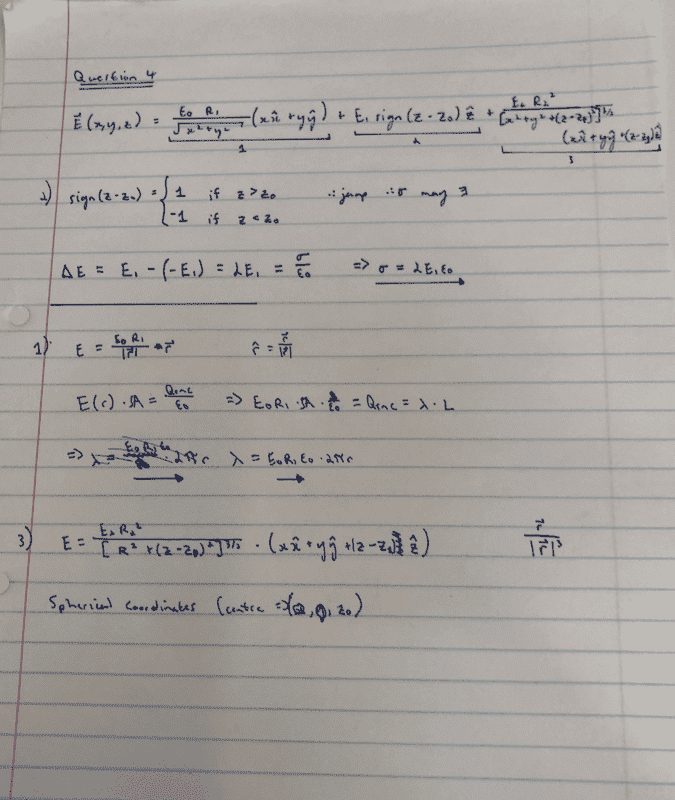 Question 4
E⃗(x,y,z) = E₀ R₁ / √(x²+y²) (xx̂ + yŷ) + E₁ sign(z - z₀) ẑ + E₂ R₂² / [x²+y²+(z-z₀)²]^3/2 (xx̂ + yŷ + (z-z₀)ẑ)
1 2 3
2) sign(z-z₀) = { 1 if z > z₀ ∴ jump ∴ σ may ∃
-1 if z < z₀
ΔE = E₁ - (-E₁) = 2E₁ = σ/ε₀ => σ = 2E₁ε₀
1) E = E₀R₁/|r⃗| · r⃗ r̂ = r⃗/|r⃗|
E(r) · A = Qenc/ε₀ => E₀R₁ · A · ε₀ = Qenc = λ · L
=> λ = 2πr λ = E₀R₁ε₀ · 2πr
3) E = E₂R₂² / [R² + (z-z₀)²]^3/2 · (xx̂ + yŷ + (z-z₀)ẑ) r⃗/|r⃗|³
Spherical coordinates (centre => (0, 0, z₀)